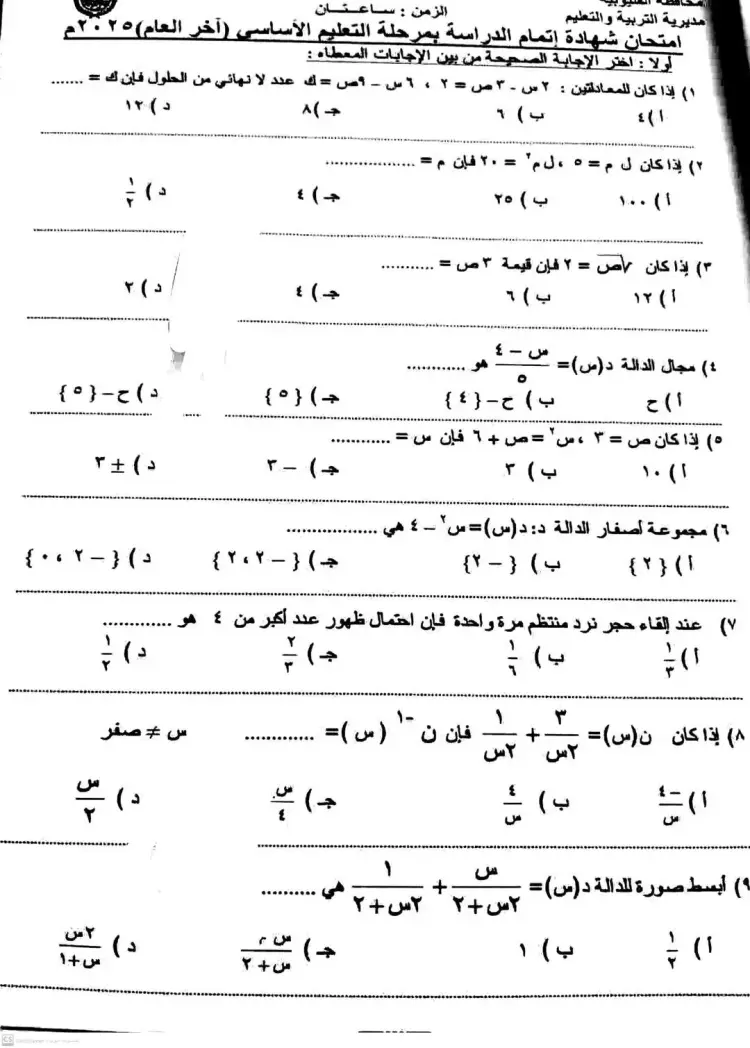 محافظة القليوبية
مديرية التربية والتعليم
الزمن : ساعتان
امتحان شهادة إتمام الدراسة بمرحلة التعليم الأساسي (آخر العام) ٢٠٢٥م
أولا : اختر الإجابة الصحيحة من بين الإجابات المعطاه :
١) إذا كان للمعادلتين : ٢س - ٣ص = ٢ ، ٦س - ٩ص = ك عدد لا نهائي من الحلول فإن ك = .......
أ) ٤ ب) ٦ جـ) ٨ د) ١٢
٢) إذا كان ل م = ٥ ، ل م٢ = ٢٠ فإن م = ..................
أ) ١٠٠ ب) ٢٥ جـ) ٤ د) ١/٢
٣) إذا كان √ص = ٢ فإن قيمة ٣ص = ...........
أ) ١٢ ب) ٦ جـ) ٤ د) ٢
٤) مجال الدالة د(س) = (س - ٤)/٥ هو ............
أ) ح ب) ح-{٤} جـ) {٥} د) ح-{٥}
٥) إذا كان ص = ٣ ، س٢ = ص + ٦ فإن س = ............
أ) ١٠ ب) ٣ جـ) - ٣ د) ± ٣
٦) مجموعة أصفار الدالة د: د(س) = س٢ - ٤ هي ..................
أ) {٢} ب) {- ٢} جـ) {- ٢ ، ٢} د) {- ٢ ، ٠}
٧) عند إلقاء حجر نرد منتظم مرة واحدة فإن احتمال ظهور عدد أكبر من ٤ هو ..............
أ) ١/٣ ب) ١/٦ جـ) ٢/٣ د) ١/٢
٨) إذا كان ن(س) = ٣/٢س + ١/٢س فإن ن-١ (س) = .............. س ≠ صفر
أ) -٤/س ب) ٤/س جـ) س/٤ د) س/٢
٩) أبسط صورة للدالة د(س) = س/(٢س+٢) + ١/(٢س+٢) هي ...........
أ) ١/٢ ب) ١ جـ) س/(س+٢) د) ٢س/(س+١)